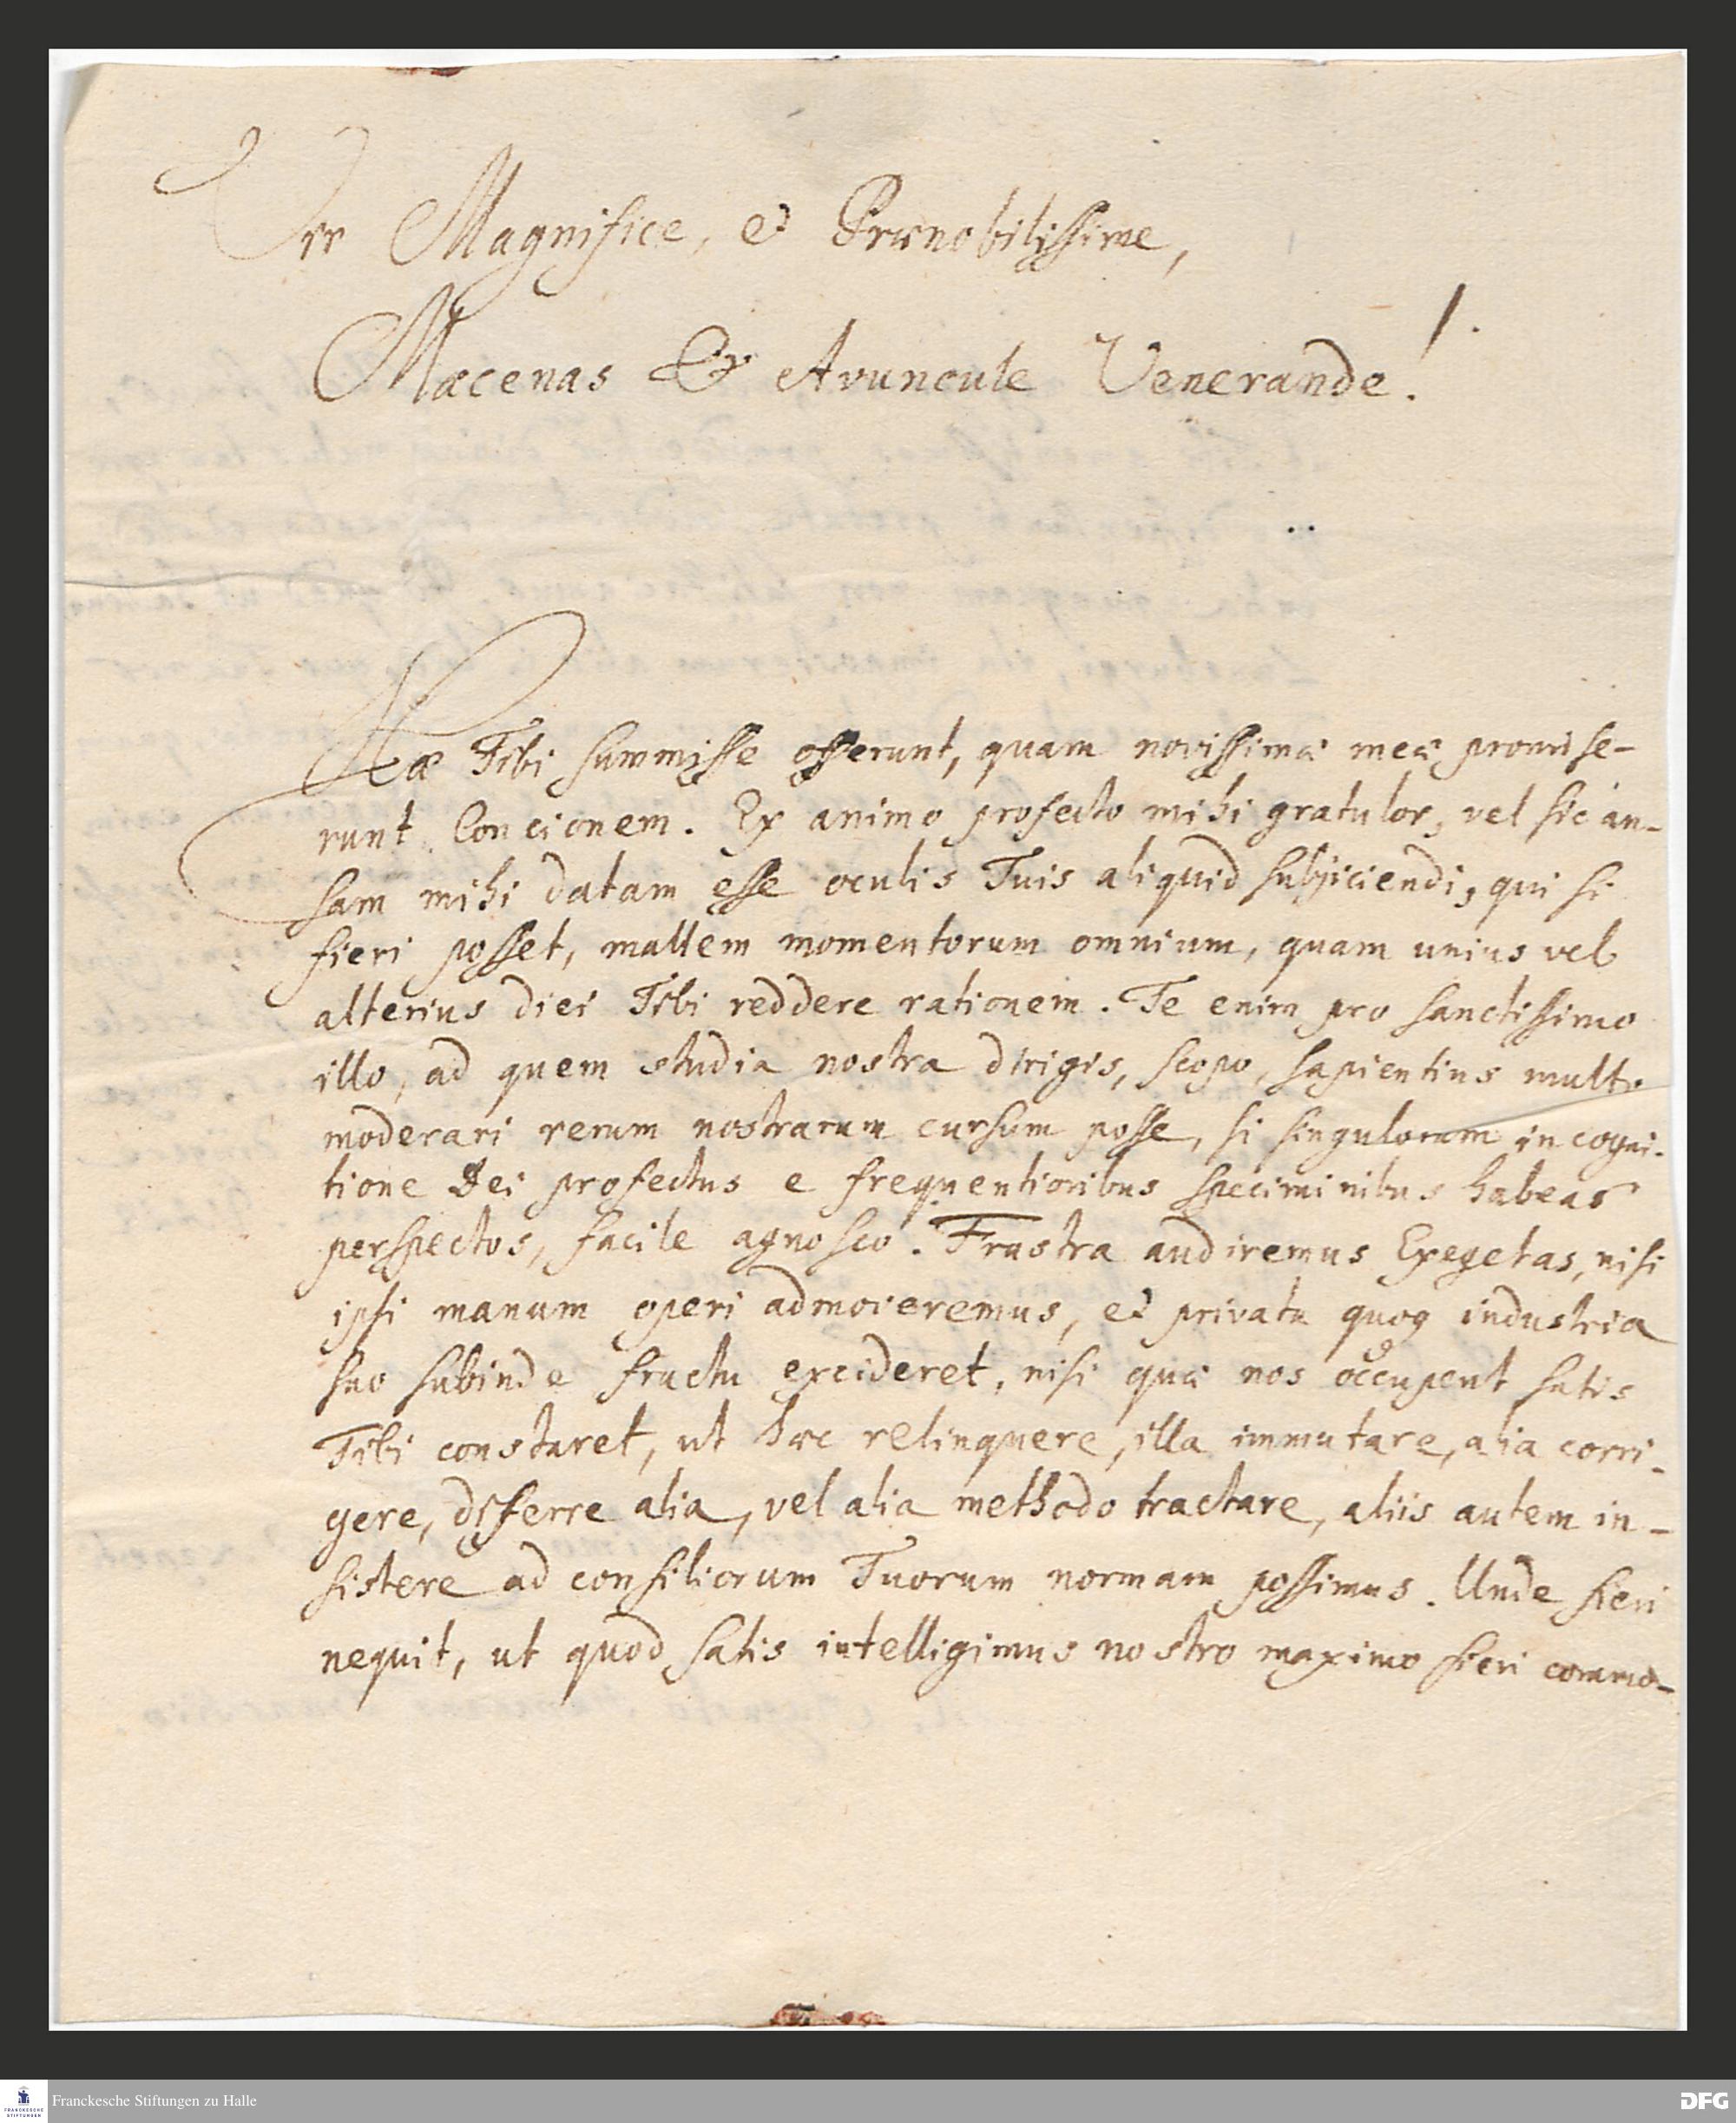 Vir Magnifice, et Prænobilissime,
Mæcenas & Avuncule Venerande!
Hæ Tibi summisse offerunt, quam novissimæ meæ promise-
runt Concionem. Ex animo profecto mihi gratulor, vel sic an-
sam mihi datam esse oculis Tuis aliquid subjiciendi, qui si
fieri posset, mallem momentorum omnium, quam unius vel
alterius diei Tibi reddere rationem. Te enim pro sanctissimo
illo, ad quem studia nostra dirigis, scopo, sapientius multo
moderari rerum nostrarum cursum posse, si singulorum in cogni-
tione Dei profectus e frequentioribus speciminibus habeas
perspectos, facile agnosco. Frustra audiremus Exegetas, nisi
ipsi manum operi admoveremus, et privata quoq industria
suo subinde fructu excideret, nisi quæ nos occupent satis
Tibi constaret, ut hæc relinquere, illa immutare, alia corri-
gere, differre alia, vel alia methodo tractare, aliis autem in-
sistere ad consiliorum Tuorum normam possimus. Unde fieri
nequit, ut quod satis intelligimus nostro maximo fieri commo-
Franckesche Stiftungen zu Halle
FRANCKESCHE
STIFTUNGEN
DFG